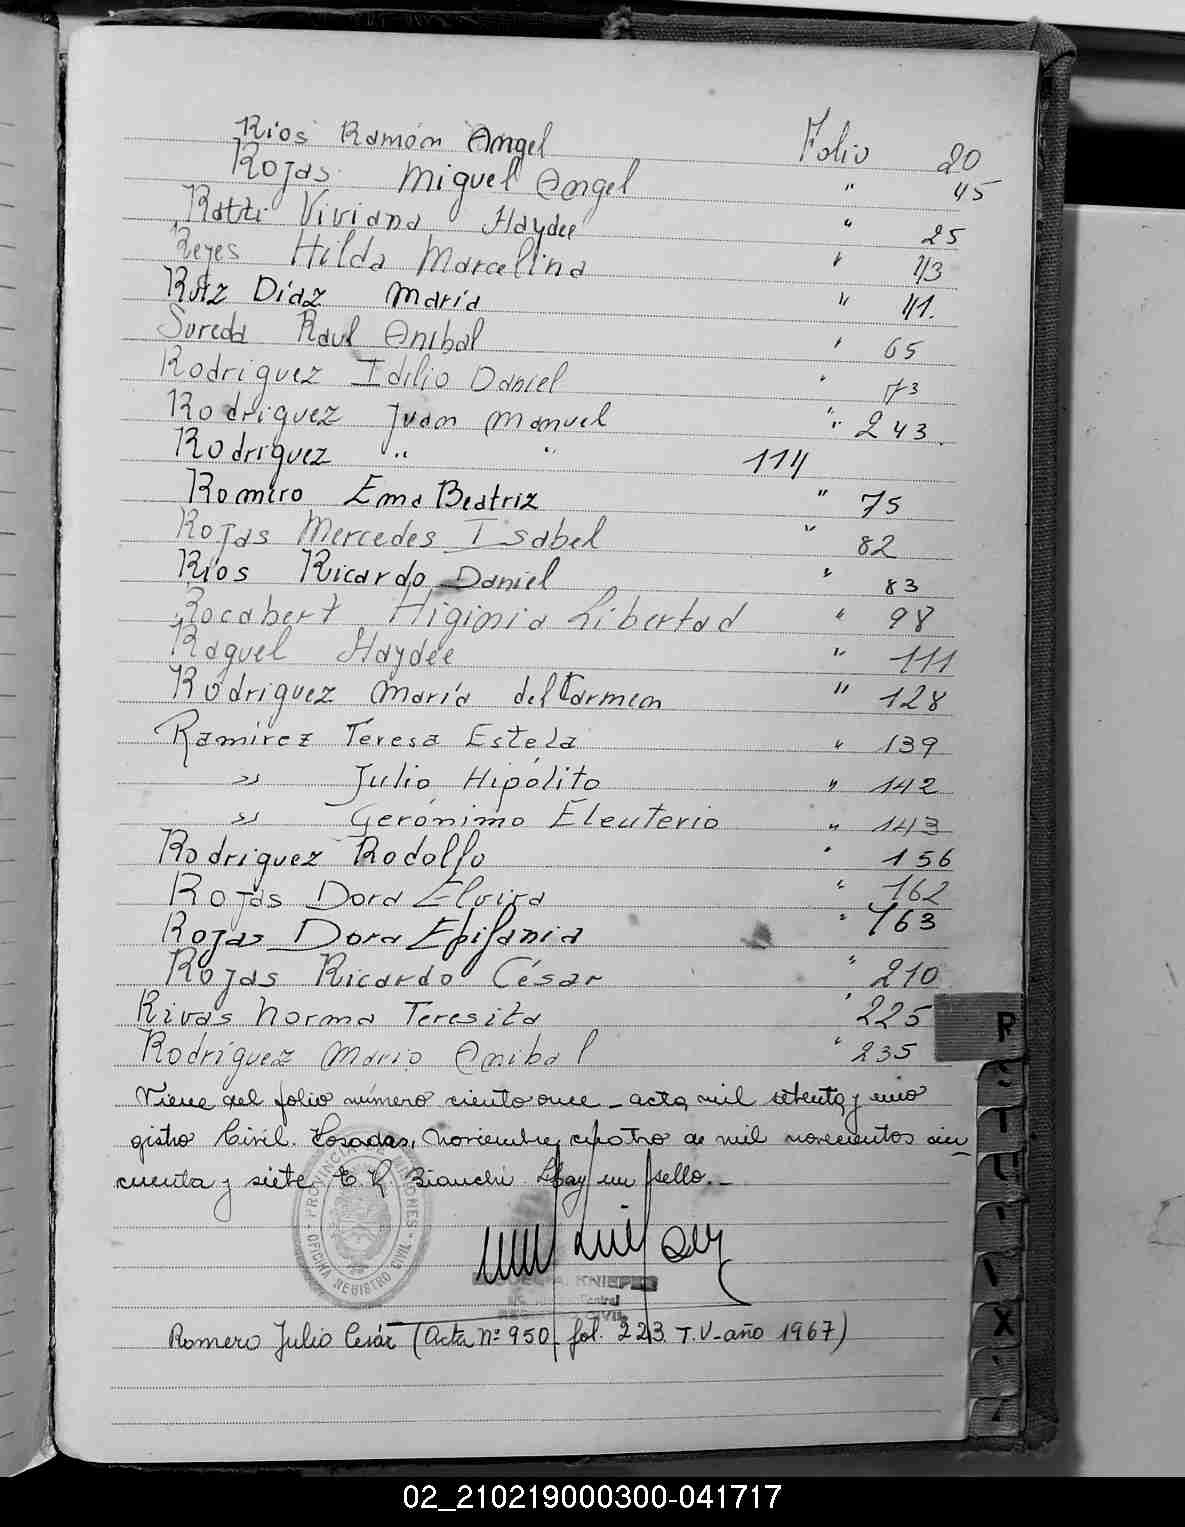 Rios Ramón Angel Folio 20
Rojas Miguel Angel " 45
Ratti Viviana Haydee " 25
Reyes Hilda Marcelina " 43
Ruiz Diaz María " 41.
Sureda Raul Anibal " 65
Rodriguez Idilio Daniel " 73
Rodriguez Juan Manuel " 243.
Rodriguez " " 114
Romiro Ema Beatriz " 75
Rojas Mercedes Isabel " 82
Rios Ricardo Daniel " 83
Rocabert Higinia Libertad " 98
Raquel Haydee " 111
Rodriguez María del Carmen " 128
Ramirez Teresa Estela " 139
" Julio Hipólito " 142
" Gerónimo Eleuterio " 143
Rodriguez Rodolfo " 156
Rojas Dora Elvira " 162
Rojas Dora Epifania " 163
Rojas Ricardo César " 210
Rivas Norma Teresita " 225
Rodríguez Mario Anibal " 235
Viene del folio número ciento once - acta mil setenta y uno
gistro Civil. Posadas, noviembre cuatro de mil novecientos cin
cuenta y siete E. R. Bianchi Hay un sello. -
PROVINCIA DE MISIONES
OFICINA REGISTRO CIVIL
A. KNIEPER
Romero Julio César (Acta Nº 950 fol. 223 T. V - año 1967)
R
T
X
02_210219000300-041717